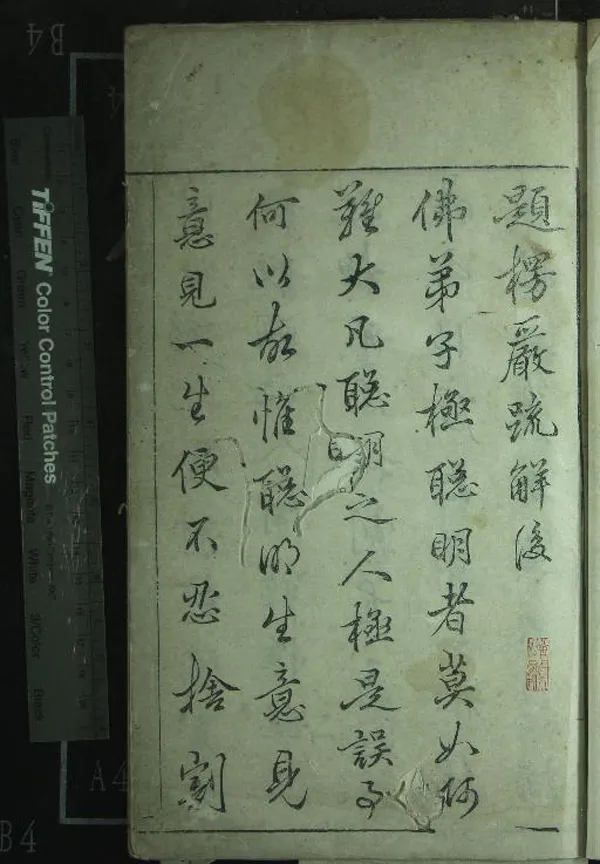 題楞嚴䟽解後
佛弟子極聰明者莫如阿
難大凡聰明之人極是誤事
何以故惟聰明生意見
意見一生便不忍捨割
TIFFEN Color Control Patches
Blue
Cyan
Green
Yellow
Red
Magenta
White
3/Color
Black
B4
A4
B4